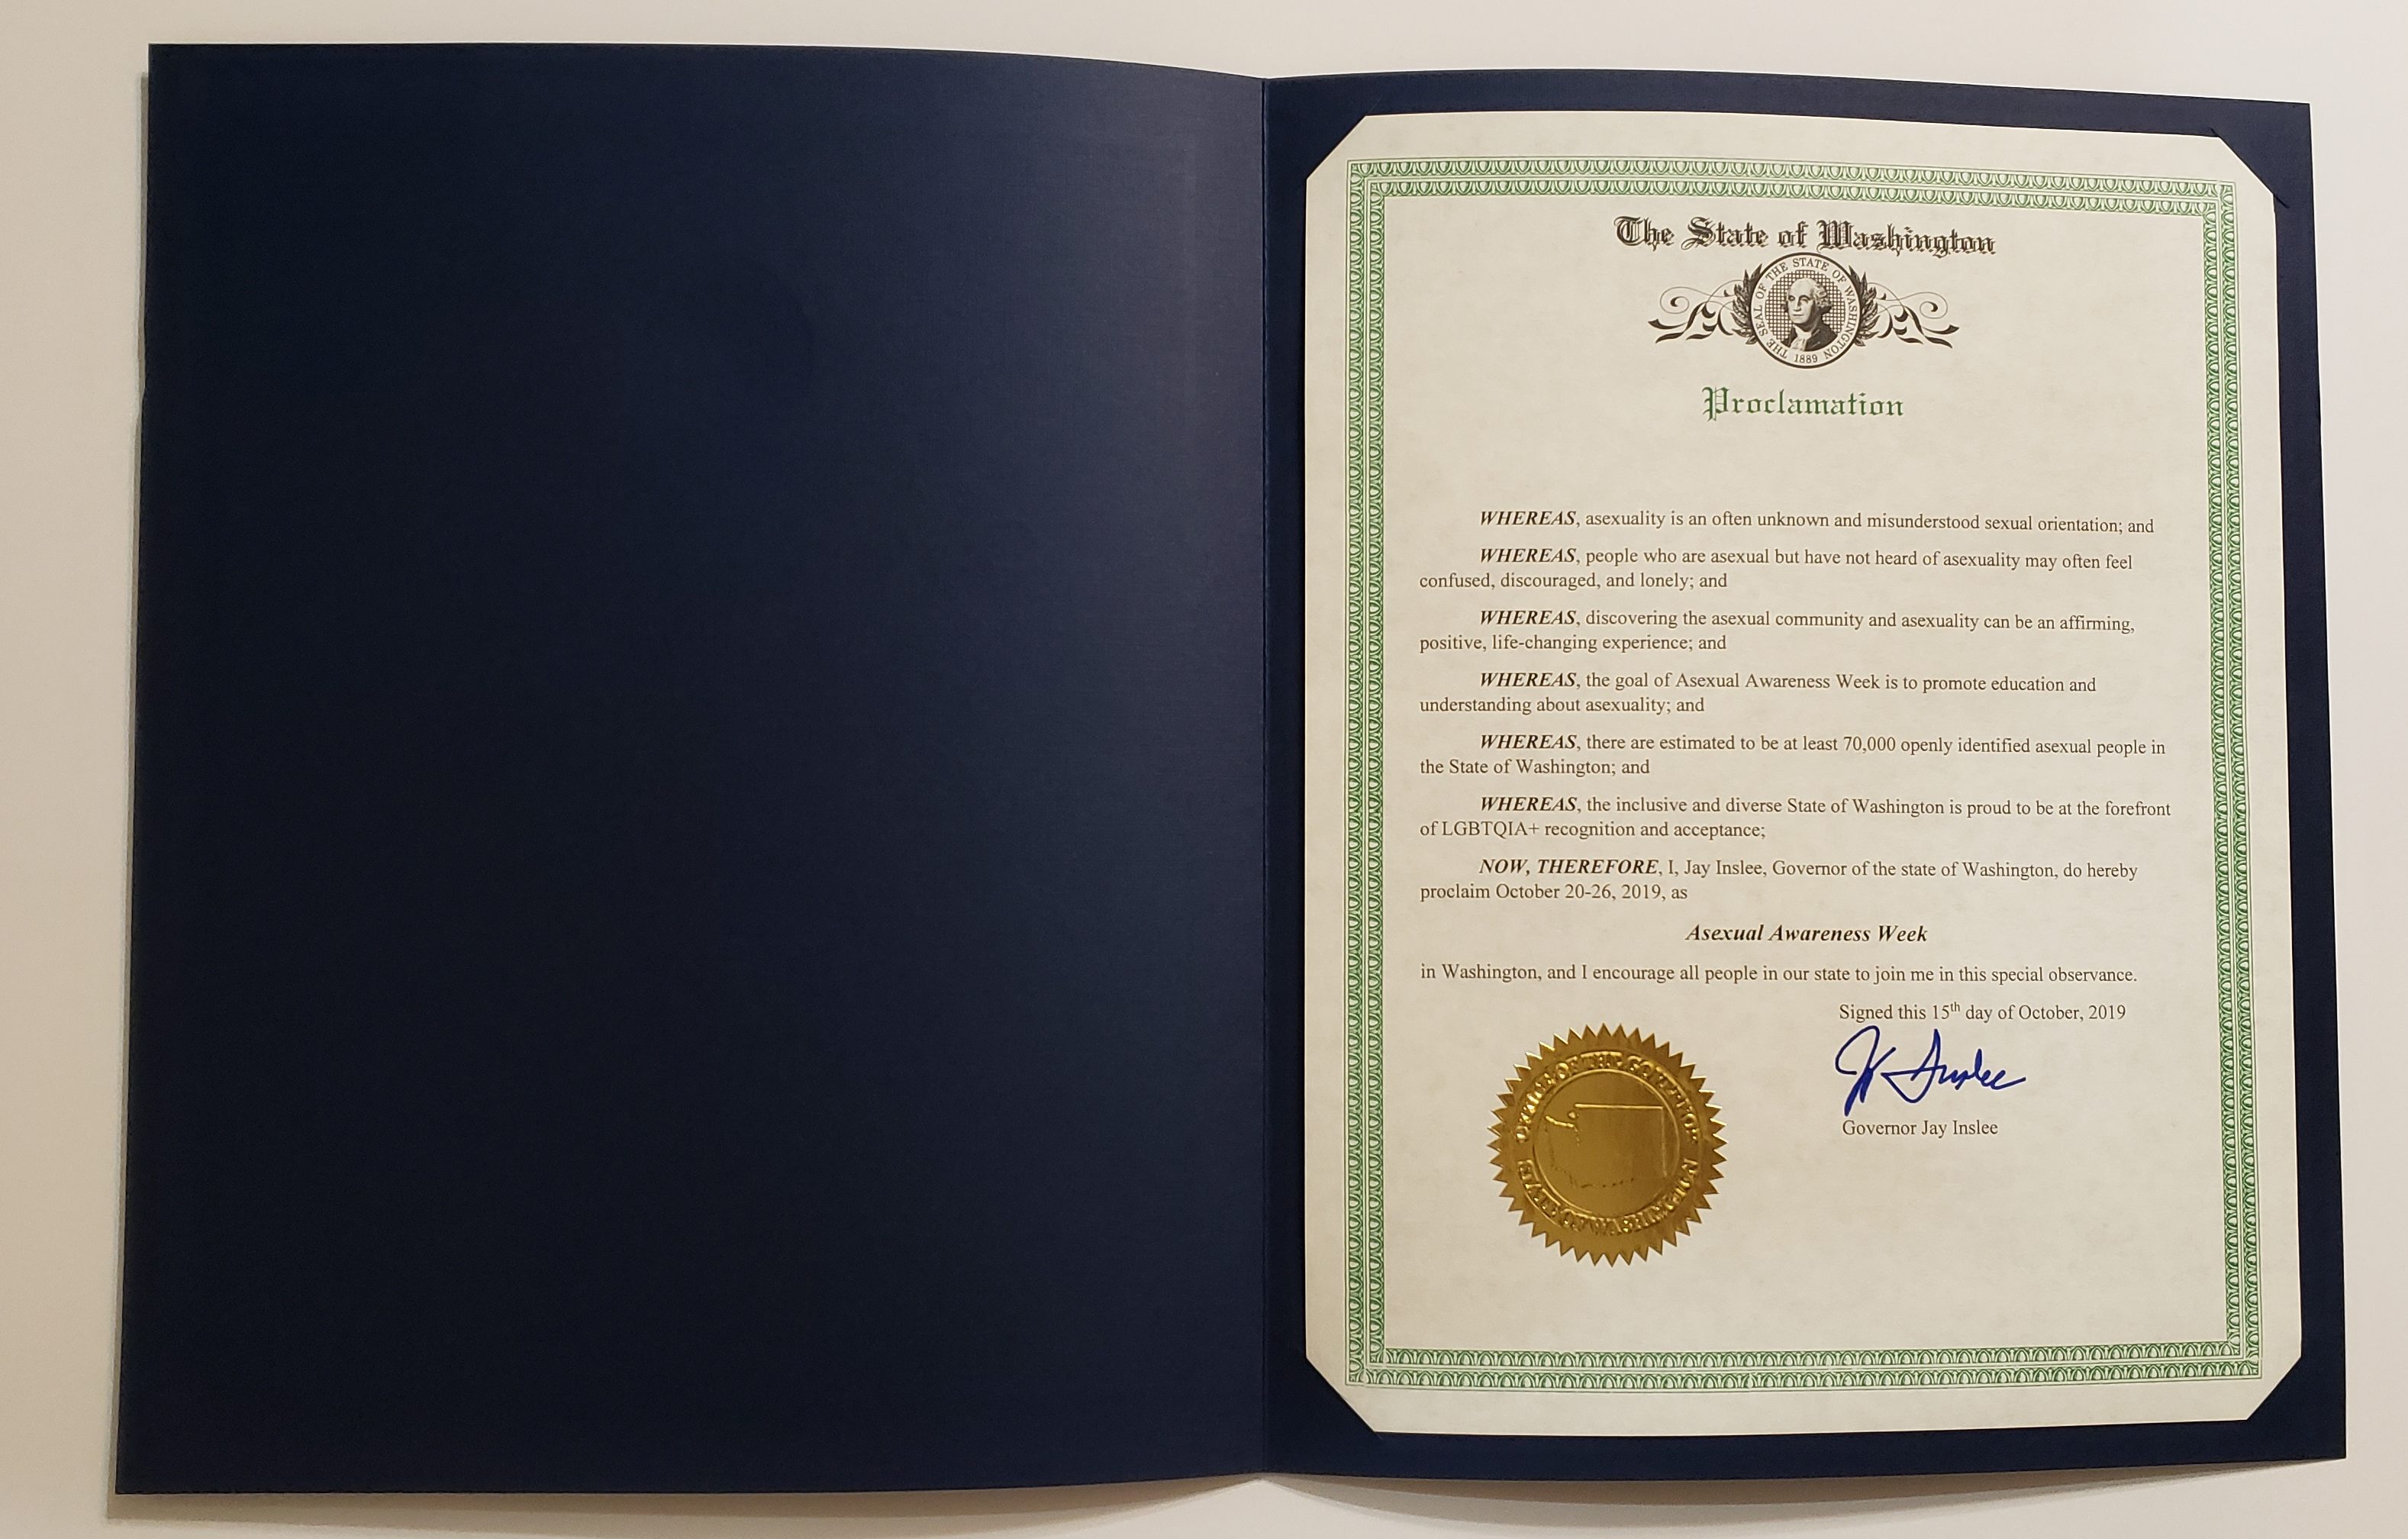 The State of Washington
THE SEAL OF THE STATE OF WASHINGTON
1889
Proclamation
WHEREAS, asexuality is an often unknown and misunderstood sexual orientation; and
WHEREAS, people who are asexual but have not heard of asexuality may often feel
confused, discouraged, and lonely; and
WHEREAS, discovering the asexual community and asexuality can be an affirming,
positive, life-changing experience; and
WHEREAS, the goal of Asexual Awareness Week is to promote education and
understanding about asexuality; and
WHEREAS, there are estimated to be at least 70,000 openly identified asexual people in
the State of Washington; and
WHEREAS, the inclusive and diverse State of Washington is proud to be at the forefront
of LGBTQIA+ recognition and acceptance;
NOW, THEREFORE, I, Jay Inslee, Governor of the state of Washington, do hereby
proclaim October 20-26, 2019, as
Asexual Awareness Week
in Washington, and I encourage all people in our state to join me in this special observance.
Signed this 15th day of October, 2019
Jay Inslee
Governor Jay Inslee
OFFICE OF THE GOVERNOR
STATE OF WASHINGTON